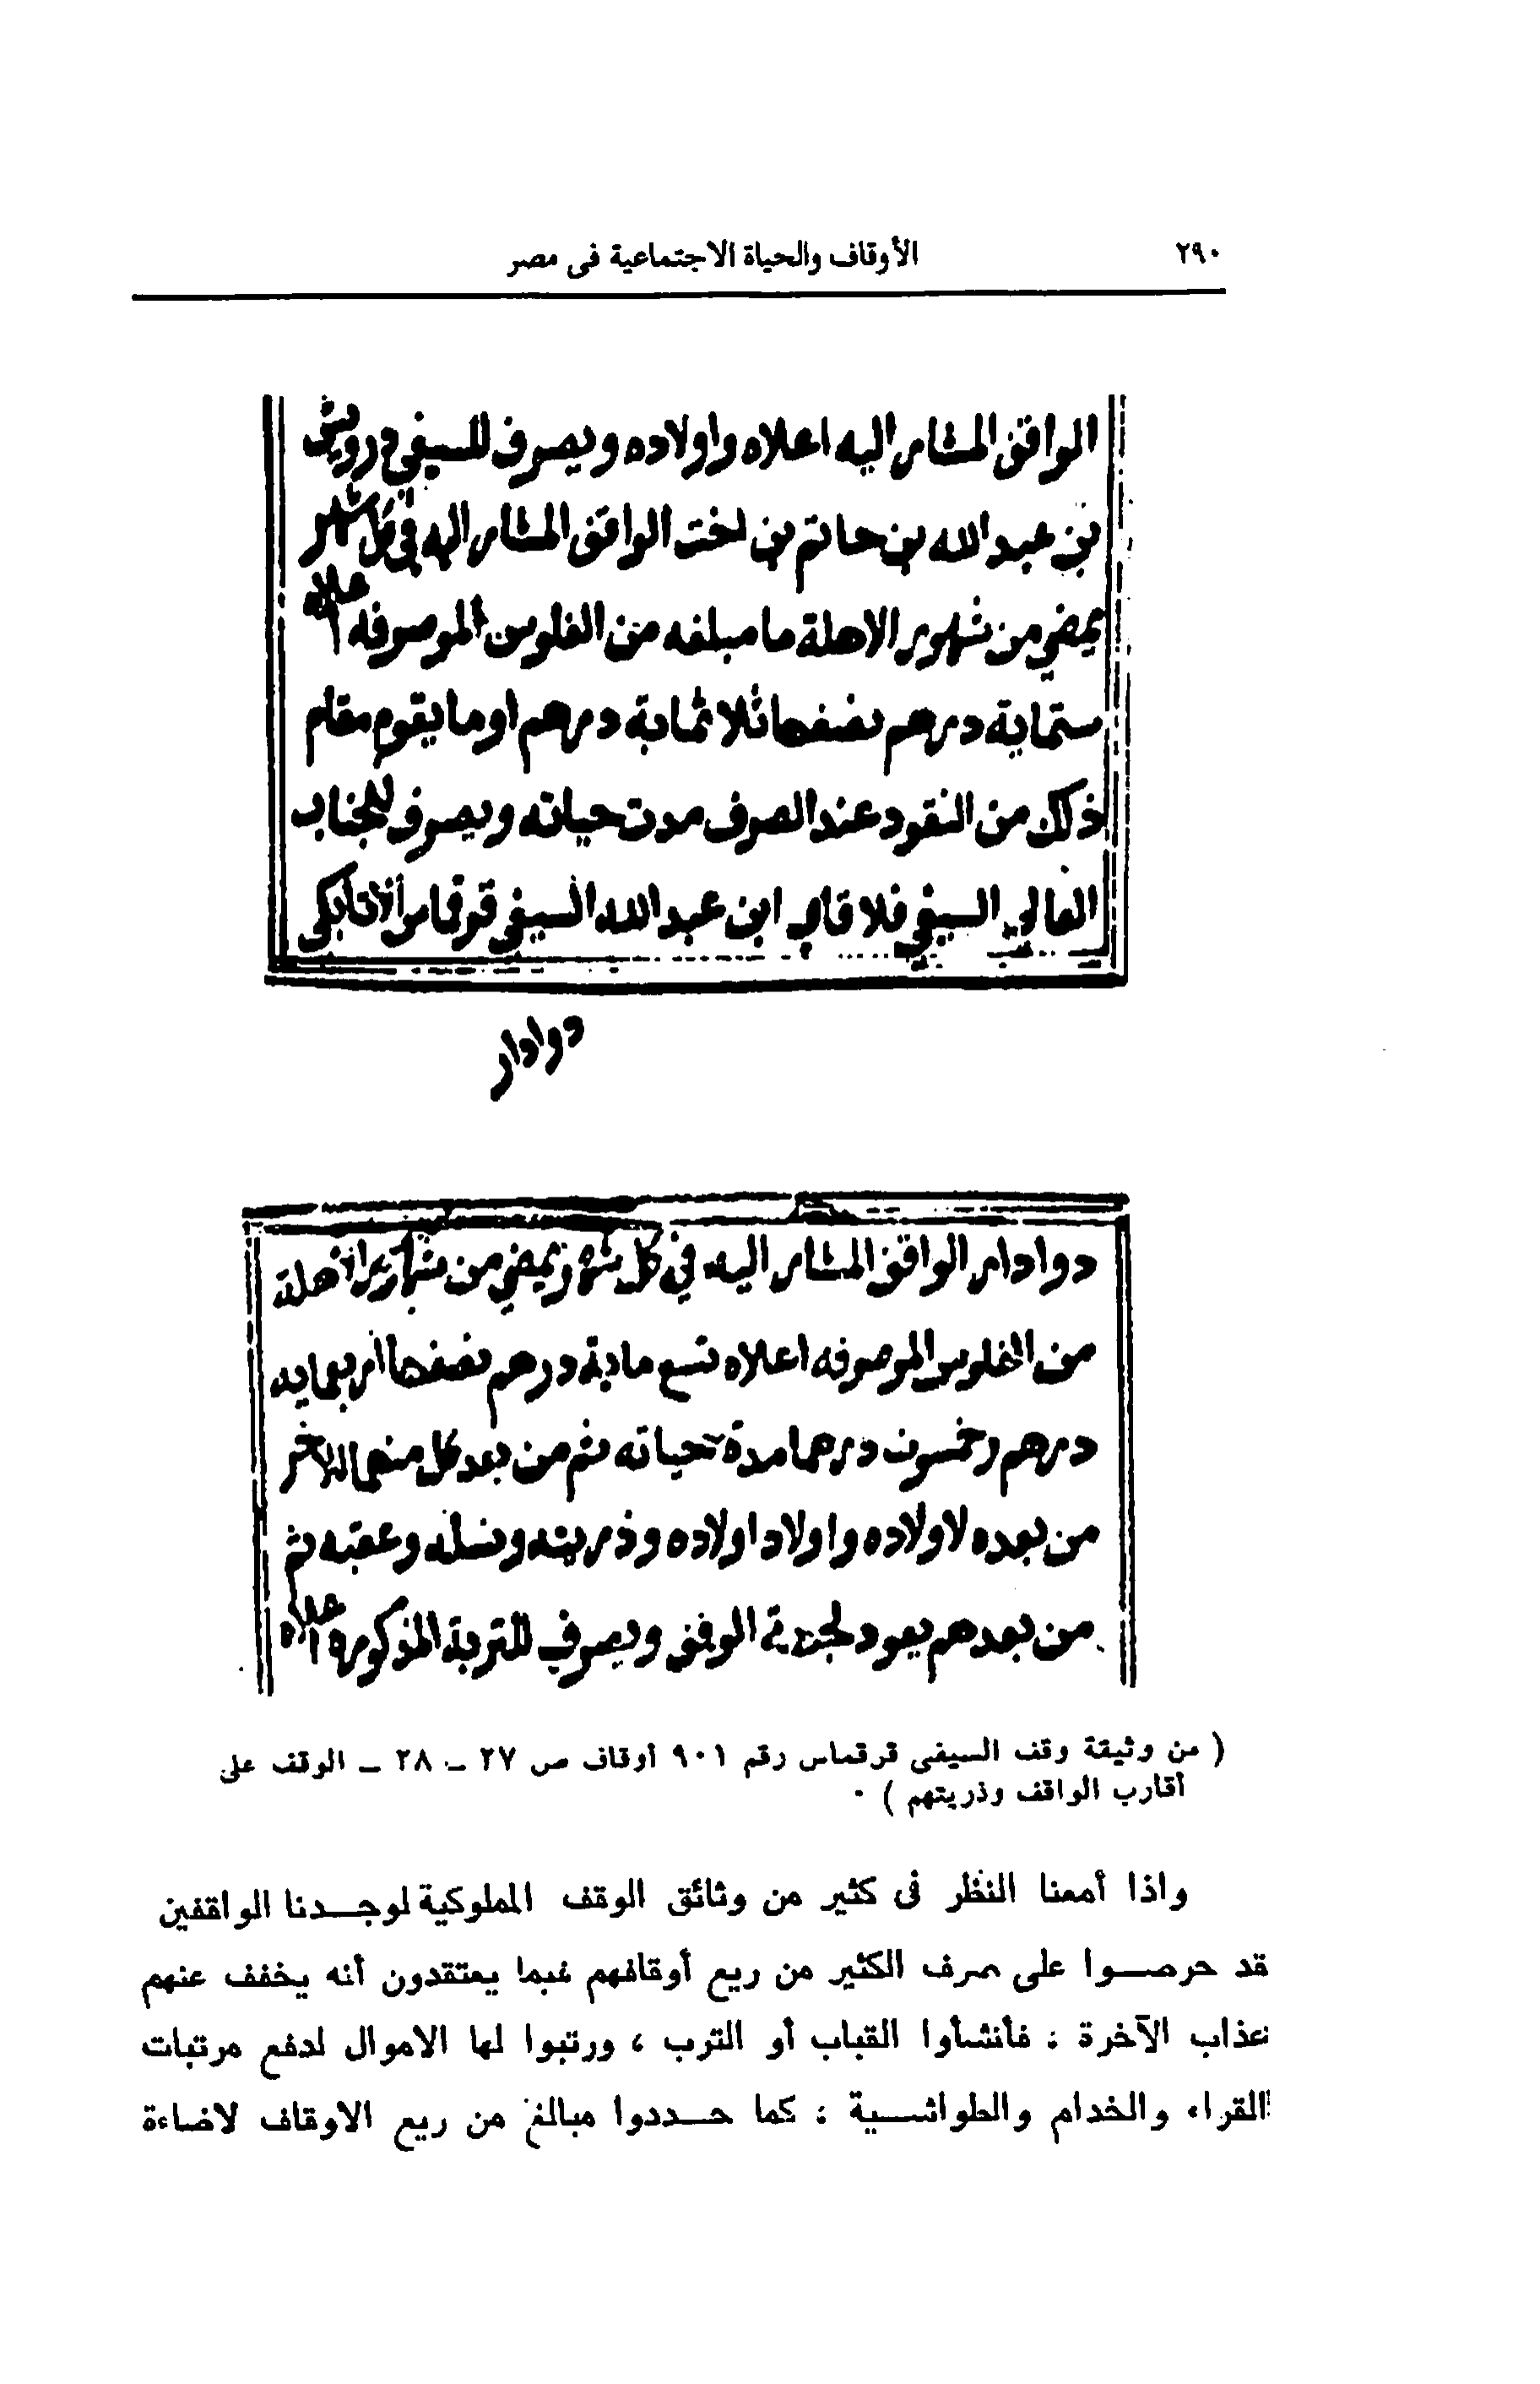 ٢٩٠
الأوقاف والحياة الاجتماعية فى مصر
الواقف المشار اليه اعلاه واولاده ويصرف للسيفي درويش
بن عبد الله بن حاتم بن اخت الواقف المشار اليه في كل شهر
يمضي من شهور الاهلة ما مبلغه من الفلوس الموصوفه اعلاه
ستماية درهم نصفها ثلاثماية درهم او ما يقوم مقام
ذلك من النقود عند الصرف مدت حياته ويصرف للجناب
العالي السيفي ابن عبد الله السيفي قرقماس الاتابكي
دوادار
دوادار الواقف المشار اليه في كل شهر يمضي من شهور الاهلة
من الفلوس الموصوفه اعلاه تسع ماية درهم نصفها اربعمايه
درهم وخمسون درهما مدة حياته ثم من بعد كل منهما
من بعده لاولاده واولاد اولاده وذريته ونسله وعقبه ثم
من بعدهم يعود لجهة الوقف ويصرف للتربة المذكورة اعلاه
( من وثيقة وقف السيفى قرقماس رقم ٩٠١ أوقاف ص ٢٧ - ٢٨ - الوقف على
أقارب الواقف وذريتهم ) ٠
واذا أمعنا النظر فى كثير من وثائق الوقف المملوكية لوجدنا الواقفين
قد حرصوا على صرف الكثير من ريع أوقافهم فيما يعتقدون أنه يخفف عنهم
عذاب الآخرة ؛ فأنشأوا القباب أو الترب ، ورتبوا لها الاموال لدفع مرتبات
القراء والخدام والطواشية ؛ كما حددوا مبالغ من ريع الاوقاف لاضاءة